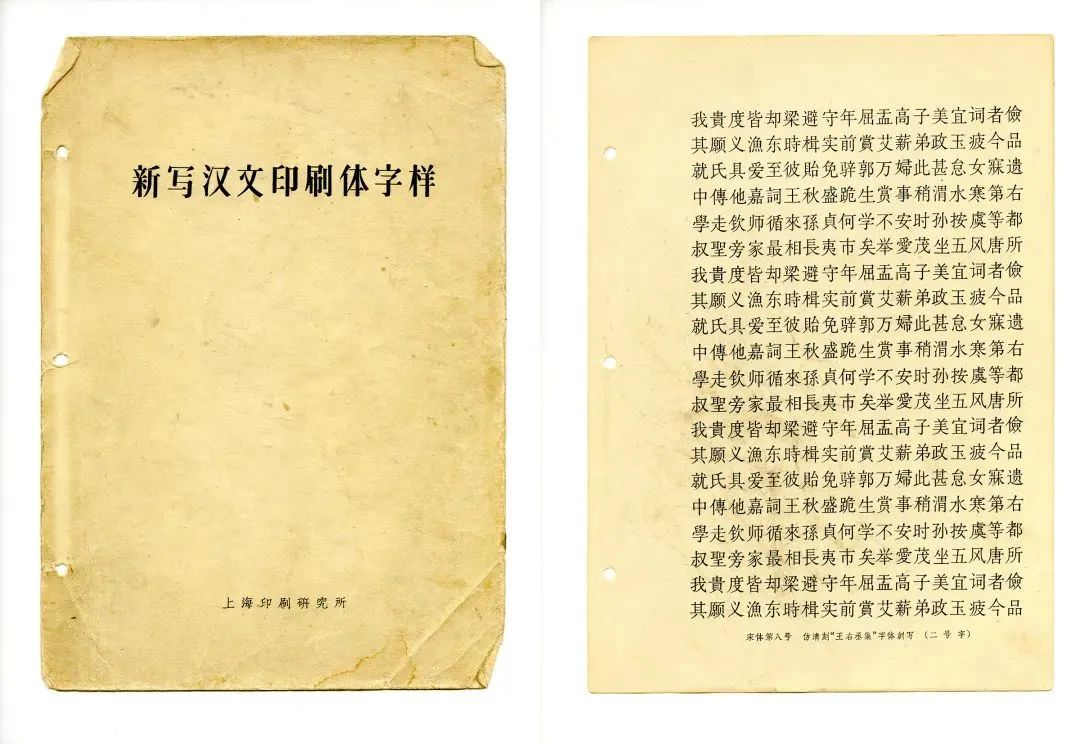 新写汉文印刷体字样
上海印刷研究所
我貴度皆却梁避守年屈盂高子美宜词者儉
其願义漁东時楫实前賞艾薪弟政玉疲今品
就氏具爱至彼貽免骍郭万婦此甚怠女寐遗
中傳他嘉詞王秋盛跪生赏事稍渭水寒第右
學走钦师循來孫貞何学不安时孙按虞等都
叔聖旁家最相長夷市矣举愛茂坐五风唐所
我貴度皆却梁避守年屈盂高子美宜词者儉
其願义漁东時楫实前賞艾薪弟政玉疲今品
就氏具爱至彼貽免骍郭万婦此甚怠女寐遗
中傳他嘉詞王秋盛跪生赏事稍渭水寒第右
學走钦师循來孫貞何学不安时孙按虞等都
叔聖旁家最相長夷市矣举愛茂坐五风唐所
我貴度皆却梁避守年屈盂高子美宜词者儉
其願义漁东時楫实前賞艾薪弟政玉疲今品
就氏具爱至彼貽免骍郭万婦此甚怠女寐遗
中傳他嘉詞王秋盛跪生赏事稍渭水寒第右
學走钦师循來孫貞何学不安时孙按虞等都
叔聖旁家最相長夷市矣举愛茂坐五风唐所
我貴度皆却梁避守年屈盂高子美宜词者儉
其願义漁东時楫实前賞艾薪弟政玉疲今品
宋体第八号 仿清刻“王右丞集”字体創写 (二号字)